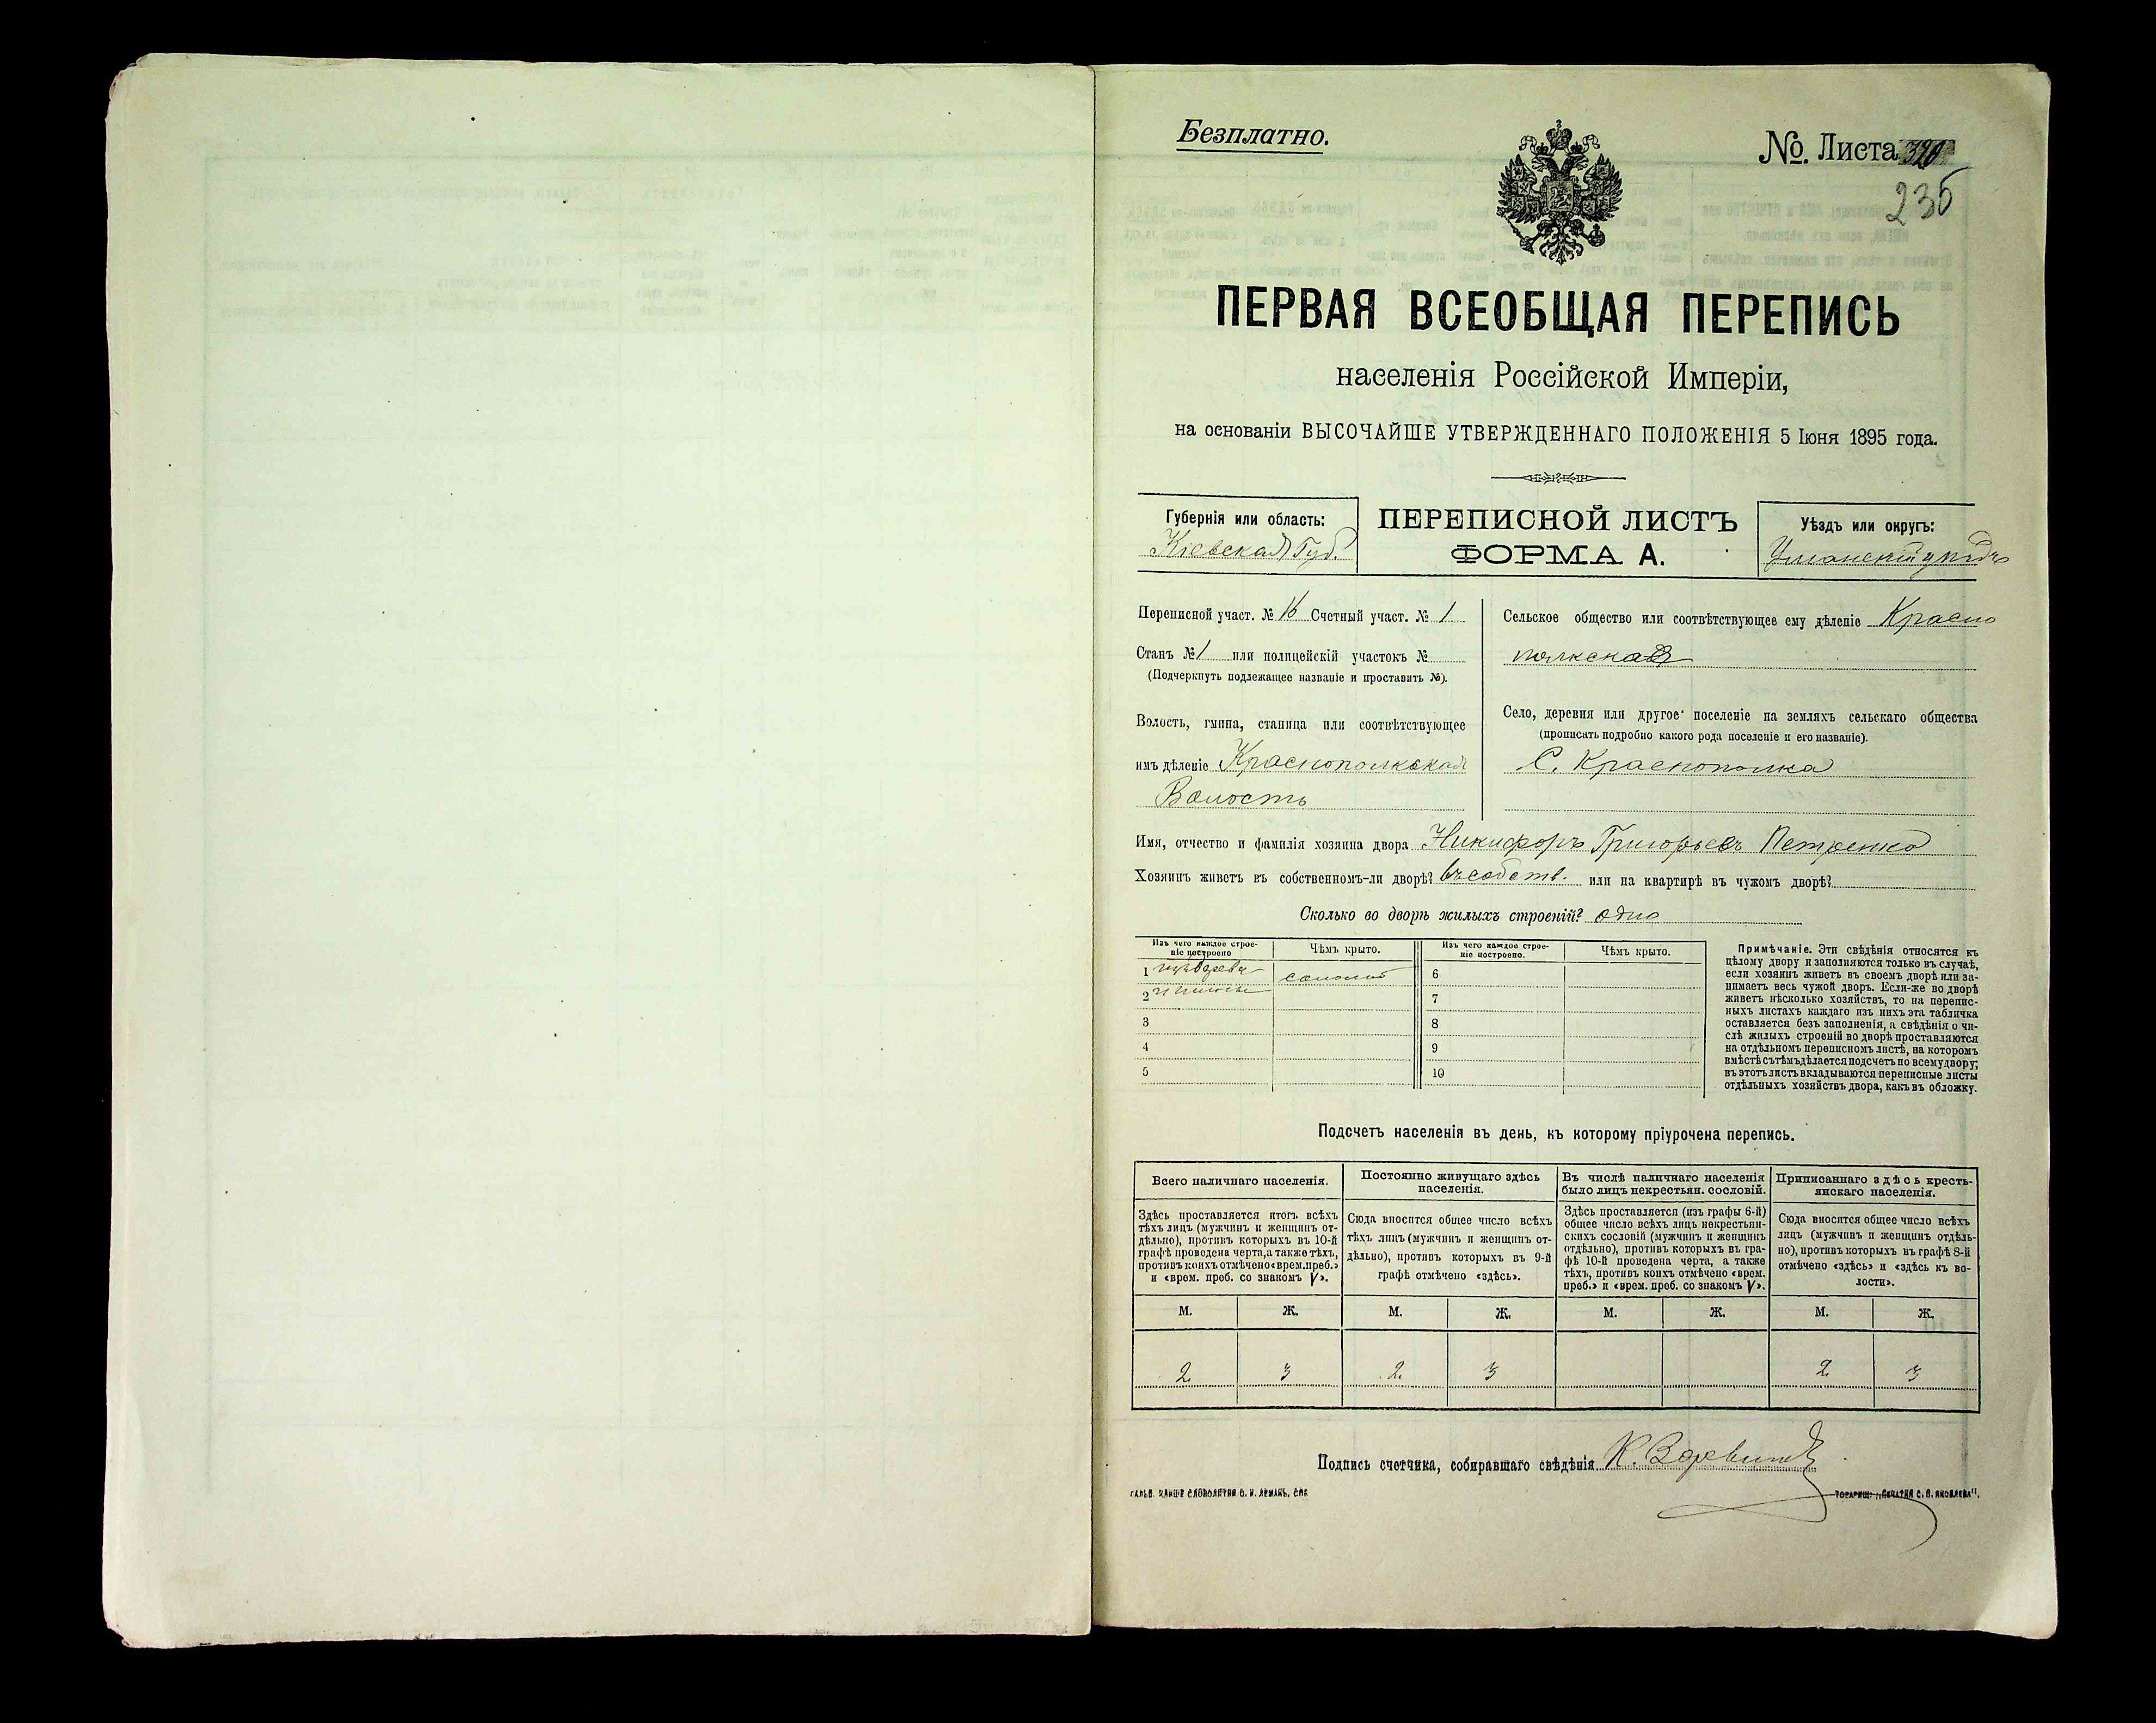 Безплатно.
№. Листа
235
ПЕРВАЯ ВСЕОБЩАЯ ПЕРЕПИСЬ
населенія Россійской Имперіи,
на основаніи ВЫСОЧАЙШЕ УТВЕРЖДЕННАГО ПОЛОЖЕНІЯ 5 Іюня 1895 года.
Губернія или область:
Кіевская Губ.
ПЕРЕПИСНОЙ ЛИСТЪ
ФОРМА А.
Уѣздъ или округъ:
Уманскій уѣздъ
Переписной участ. № 16 Счетный участ. № 1
Станъ № 1 или полицейскій участокъ №
(Подчеркнуть подлежащее названіе и проставить №).
Волость, гмина, станица или соотвѣтствующее
имъ дѣленіе Краснополкская
Волость
Сельское общество или соотвѣтствующее ему дѣленіе Красно
полкская
Село, деревня или другое поселеніе на земляхъ сельскаго общества
(прописать подробно какого рода поселеніе и его названіе).
С. Краснополка
Имя, отчество и фамилія хозяина двора Никифоръ Григорьевъ Петренко
Хозяинъ живетъ въ собственномъ-ли дворѣ? въ собств. или на квартирѣ въ чужомъ дворѣ?
Сколько во дворѣ жилыхъ строеній? одно
Изъ чего каждое строе-
ніе построено
Чѣмъ крыто.
Изъ чего каждое строе-
ніе построено.
Чѣмъ крыто.
1 изъ дерева соломой
2 и глины
3
4
5
6
7
8
9
10
Примѣчаніе. Эти свѣдѣнія относятся къ
цѣлому двору и заполняются только въ случаѣ,
если хозяинъ живетъ въ своемъ дворѣ или за-
нимаетъ весь чужой дворъ. Если-же во дворѣ
живетъ нѣсколько хозяйствъ, то на перепис-
ныхъ листахъ каждаго изъ нихъ эта табличка
оставляется безъ заполненія, а свѣдѣнія о чи-
слѣ жилыхъ строеній во дворѣ проставляются
на отдѣльномъ переписномъ листѣ, на которомъ
вмѣстѣ съ тѣмъ дѣлается подсчетъ по всему двору;
въ этотъ листъ вкладываются переписные листы
отдѣльныхъ хозяйствъ двора, какъ въ обложку.
Подсчетъ населенія въ день, къ которому пріурочена перепись.
Всего наличнаго населенія.
Здѣсь проставляется итогъ всѣхъ
тѣхъ лицъ (мужчинъ и женщинъ от-
дѣльно), противъ которыхъ въ 10-й
графѣ проведена черта, а также тѣхъ,
противъ коихъ отмѣчено «врем. преб.»
и «врем. преб. со знакомъ V».
Постоянно живущаго здѣсь
населенія.
Сюда вносится общее число всѣхъ
тѣхъ лицъ (мужчинъ и женщинъ от-
дѣльно), противъ которыхъ въ 9-й
графѣ отмѣчено «здѣсь».
Въ числѣ наличнаго населенія
было лицъ некрестьян. сословій.
Здѣсь проставляется (изъ графы 6-й)
общее число всѣхъ лицъ некрестьян-
скихъ сословій (мужчинъ и женщинъ
отдѣльно), противъ которыхъ въ гра-
фѣ 10-й проведена черта, а также
тѣхъ, противъ коихъ отмѣчено «врем.
преб.» и «врем. преб. со знакомъ V».
Приписаннаго здѣсь кресть-
янскаго населенія.
Сюда вносится общее число всѣхъ
лицъ (мужчинъ и женщинъ отдѣль-
но), противъ которыхъ въ графѣ 8-й
отмѣчено «здѣсь» и «здѣсь къ во-
лости».
М. Ж. М. Ж. М. Ж. М. Ж.
2 3 2 3 2 3
Подпись счетчика, собиравшаго свѣдѣнія К.